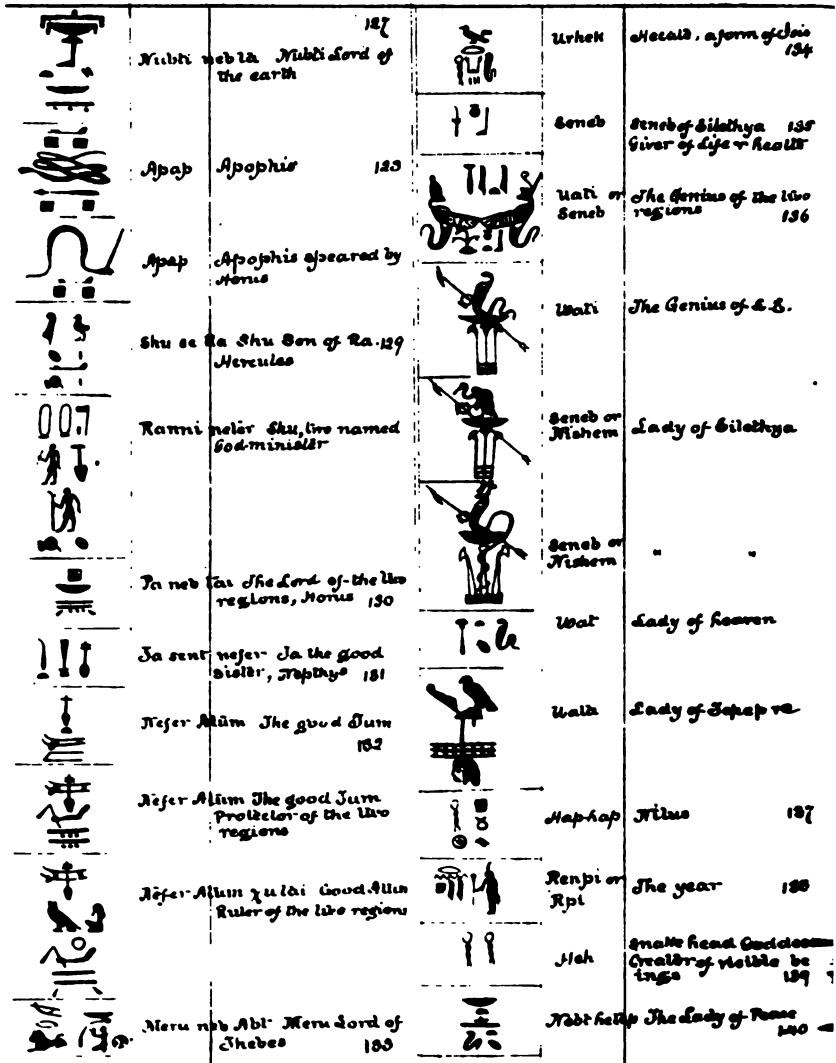 127
Nubti neb ta Nubti Lord of
the earth
Apap Apophis 123
Apap Apophis speared by
Horus
Shu se Ra Shu Son of Ra. 129
Hercules
Ranni neter Shu, two named
God-minister
Pa neb tai The Lord of the two
regions, Horus 130
Ja sent nefer Ja the good
sister, Nepthys 131
Nefer Atum The good Tum
132
Nefer Atum The good Tum
Protector of the two
regions
Nefer Atum χu tai Good Atum
Ruler of the two regions
Meru neb Abt Meru Lord of
Thebes 133
Urhek Herald, a form of Isis
134
Seneb Seneb of Eilethya 135
Giver of Life & health
Uati or The Genius of the two
Seneb regions 136
Wati The Genius of
Seneb or Lady of Eilethya
Nishem
Seneb or " "
Nishem
Wat Lady of heaven
Uati Lady of
Hap-hap Nilus 137
Renpi or The year 138
Rpi
Heh Snake head Goddess
Creator of visible be
ings 139
Nebt hetep The Lady of Peace
140